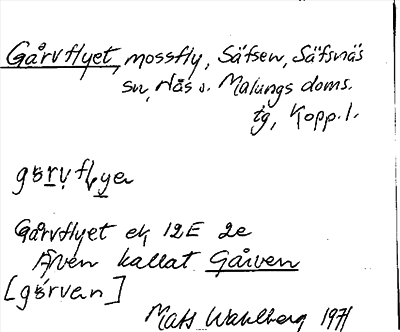 Gårvflyet, mossfly, Säfsen, Säfsnäs
sn, Nås o. Malungs doms.
tg, Kopp. l.
gɵrvflyen
Gårvflyet ek 12E 2e
Även kallat Gårven
[gɵrven]
Mats Wahlberg 1971